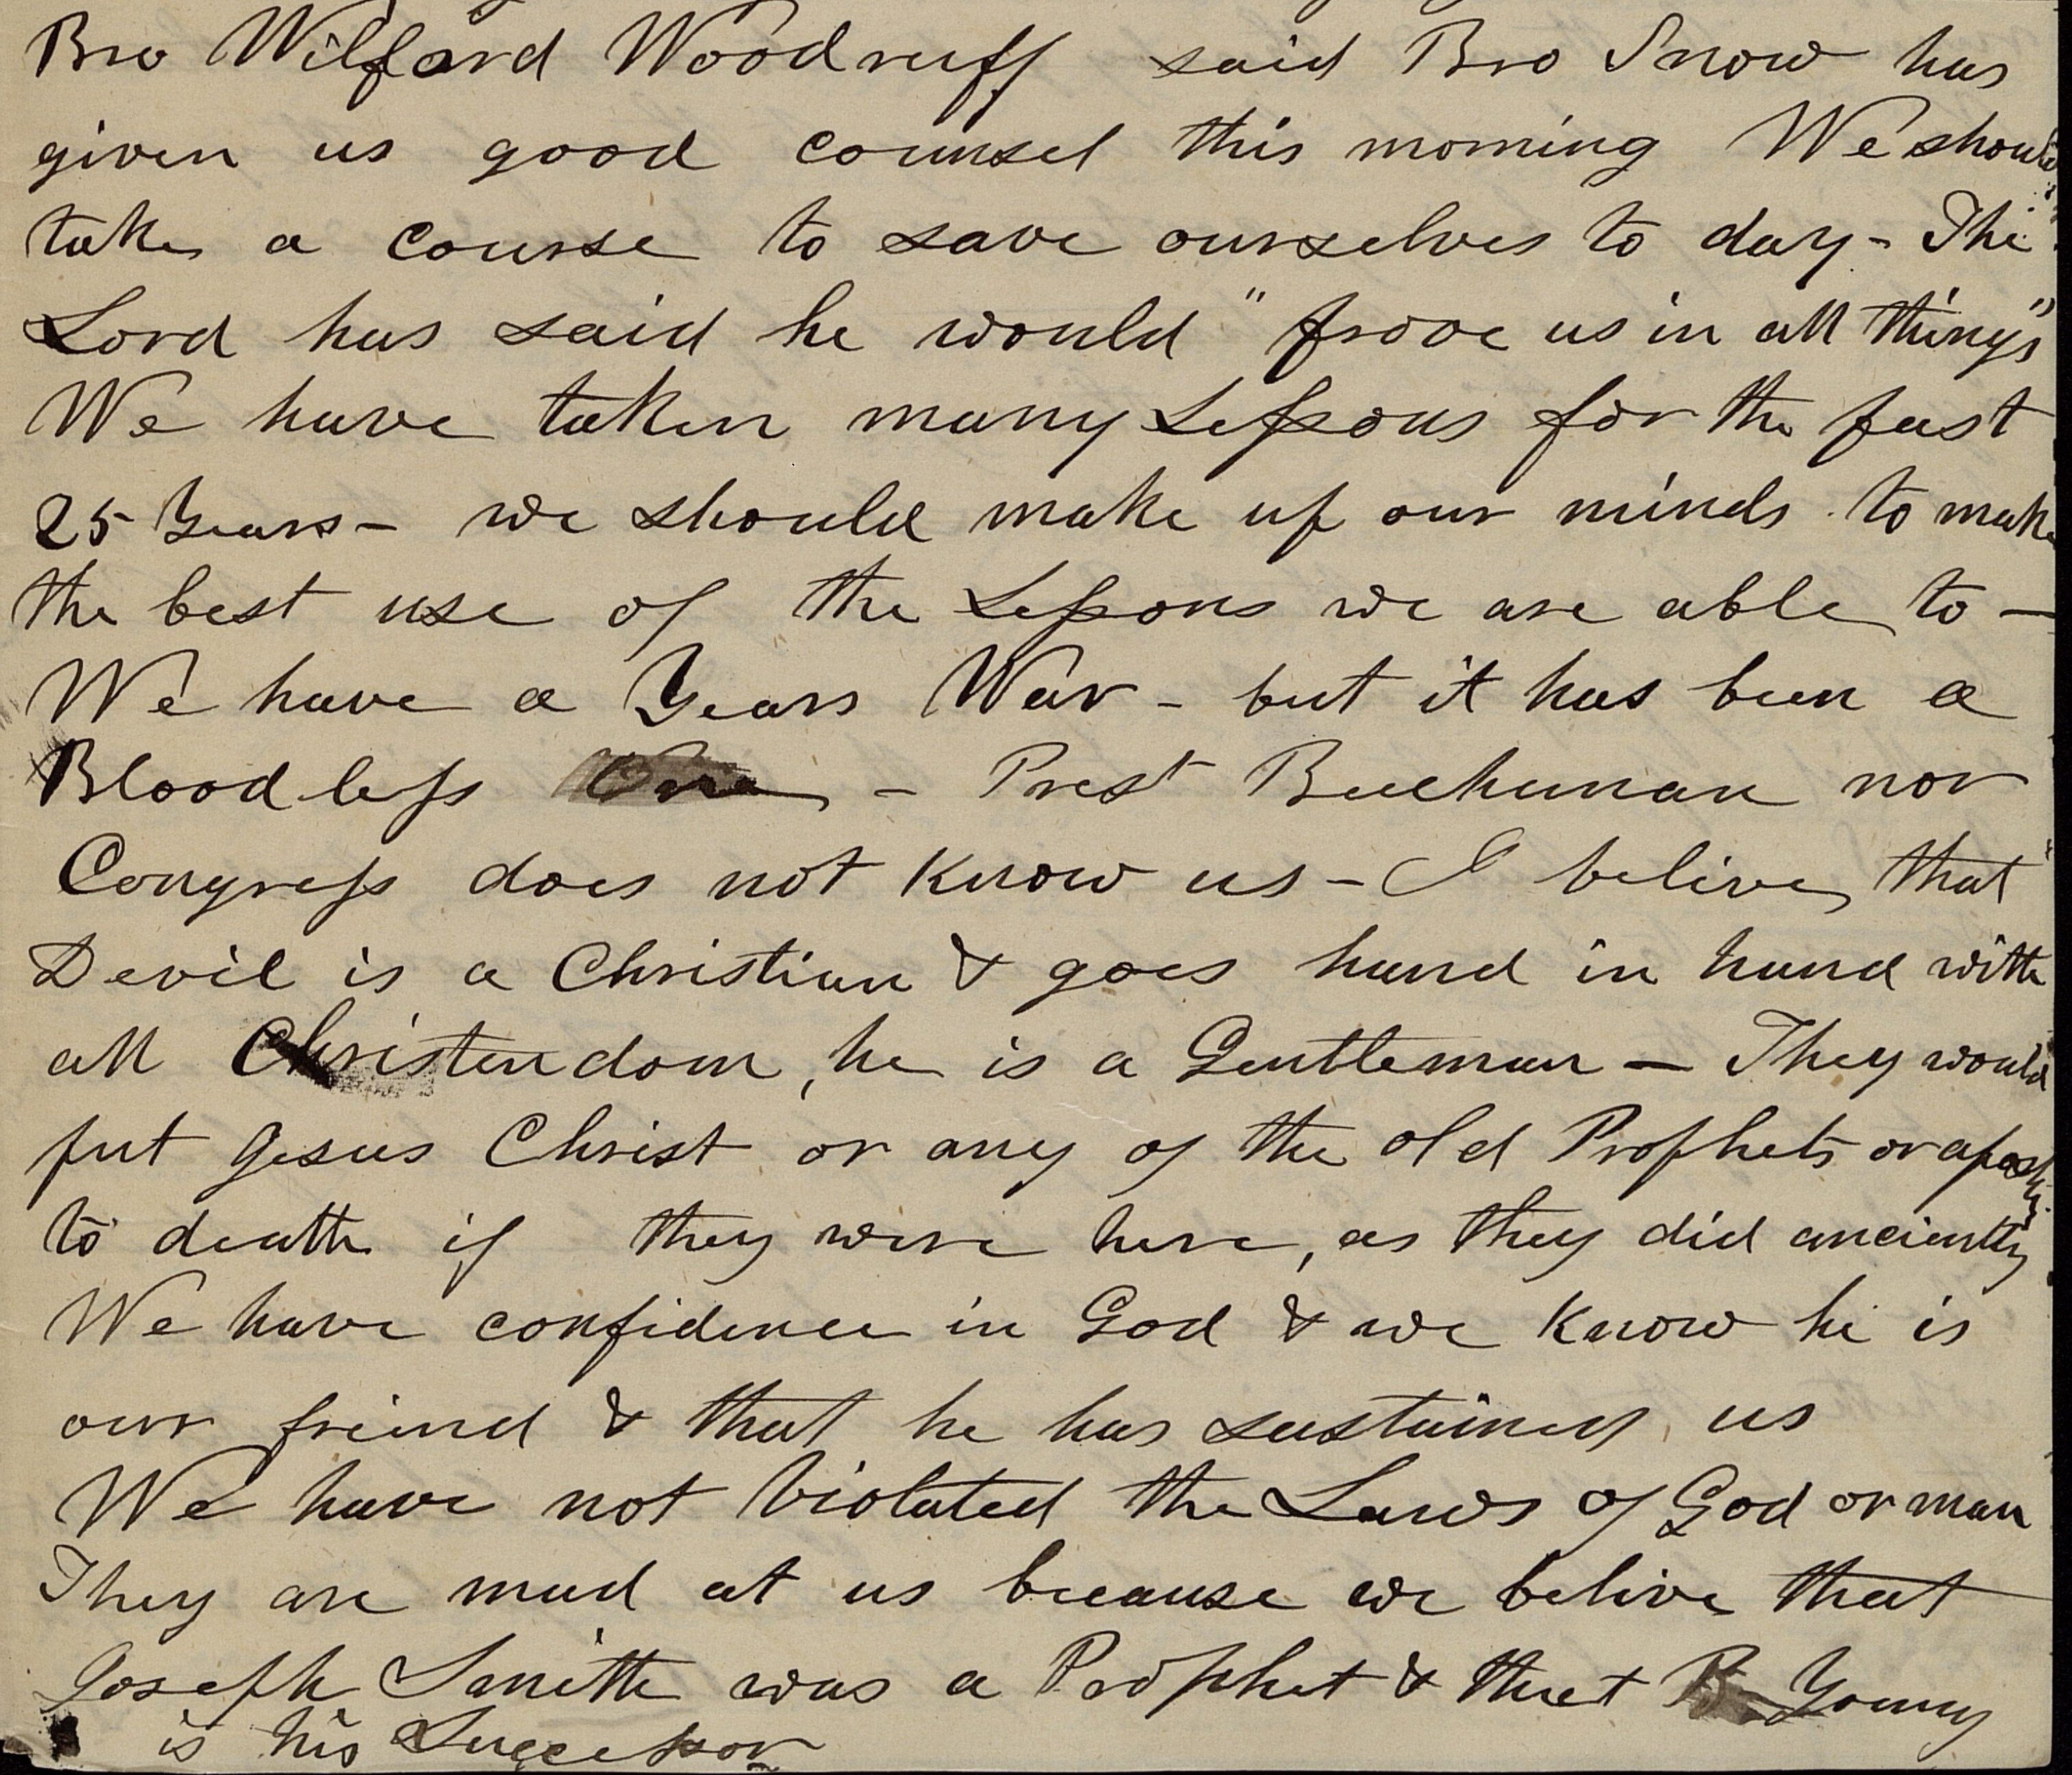 Bro Wilford Woodruff said Bro Snow has
given us good counsel this morning We should
take a course to save ourselves to day - The
Lord has said he would "prove us in all things"
We have taken many Lessons for the past
25 Years - we should make up our minds to make
the best use of the Lessons we are able to -
We have a Years War - but it has been a
Bloodless One - Prest Buchanan nor
Congress does not know us - I belive that
Devil is a Christian & goes hand in hand with
all Christendom, he is a Gentleman - They would
put Jesus Christ or any of the old Prophets or apostles
to death if they were here, as they did anciently
We have confidence in God & we know he is
our friend & that he has sustained us
We have not Violated the Laws of God or man
They are mad at us because we belive that
Joseph Smith was a Prophet & that B Young
is his Successor